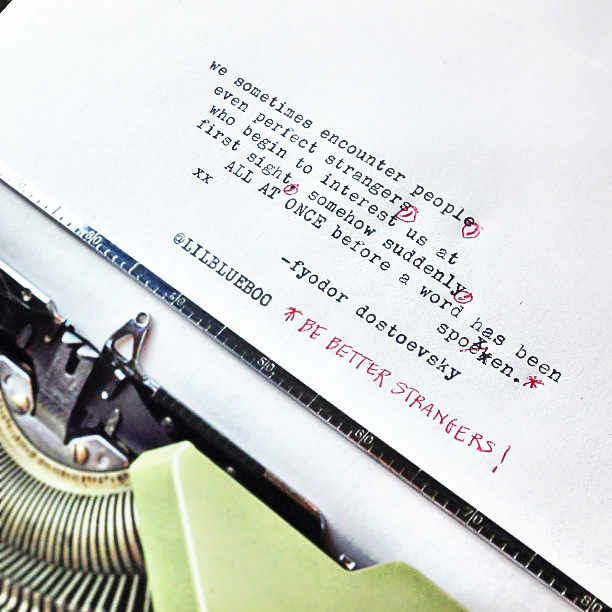 we sometimes encounter people,
even perfect strangers,
who begin to interest us at
first sight, somehow suddenly,
ALL AT ONCE before a word has been
xx spoken.*
-fyodor dostoevsky
@LILBLUEBOO
*BE BETTER STRANGERS!
30 40 50 60 70 8